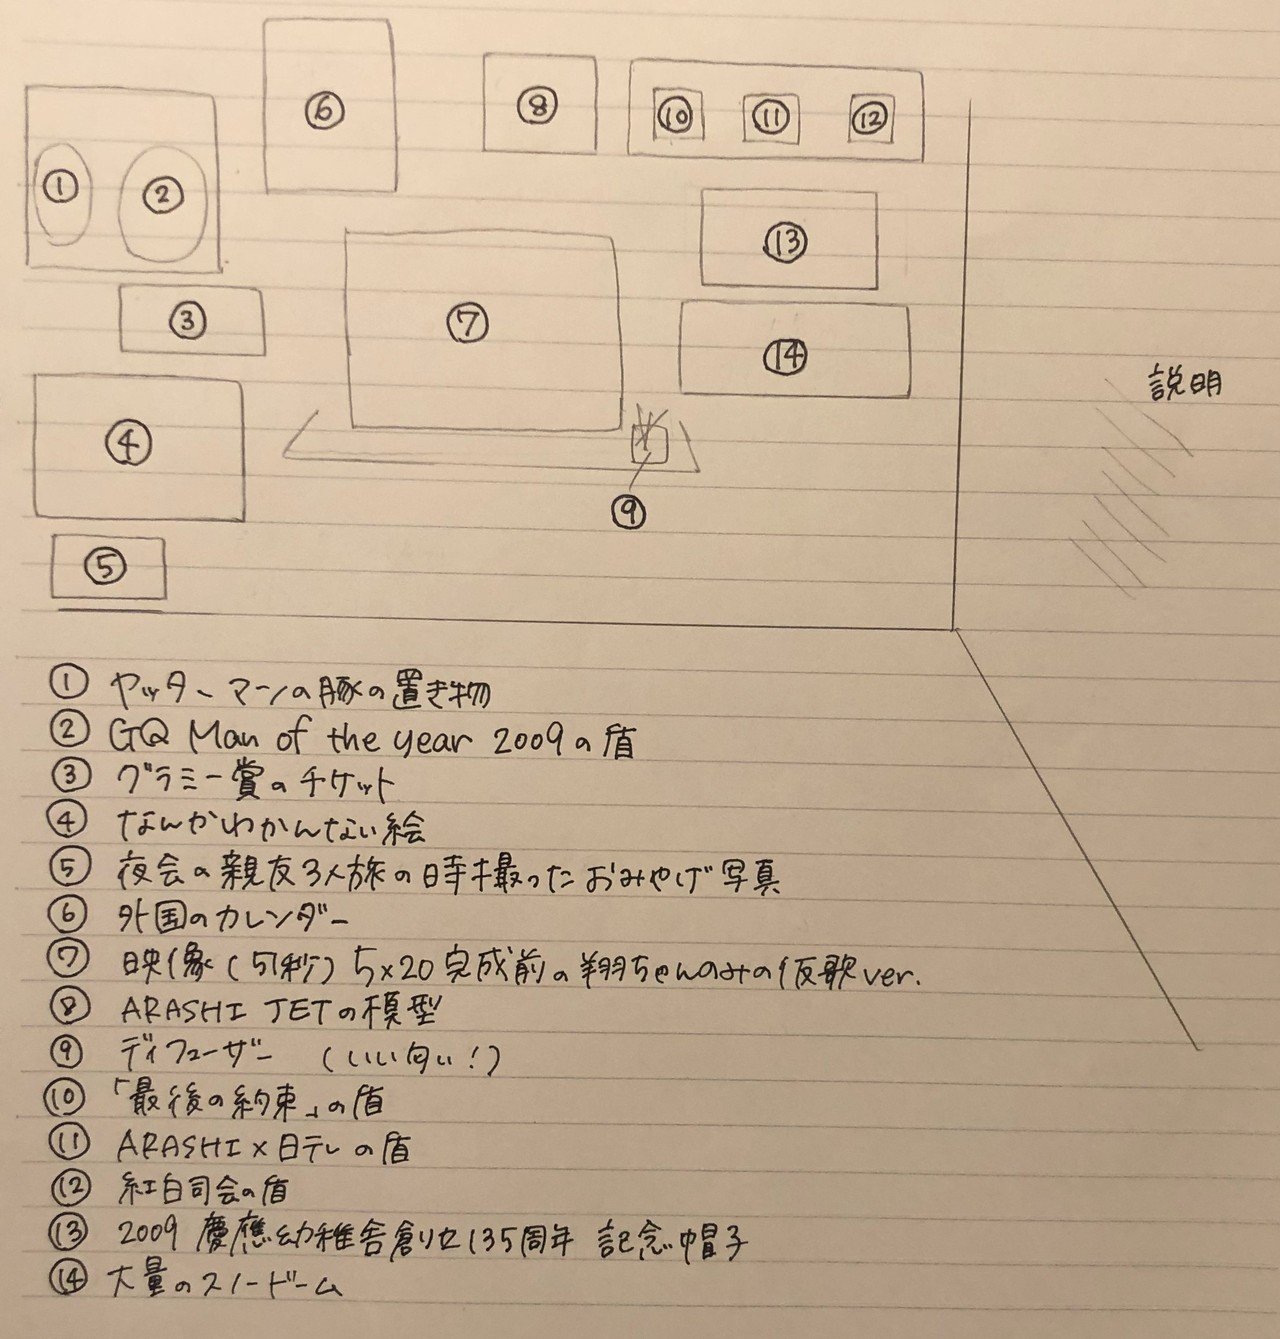 ⑥
⑧
⑩ ⑪ ⑫
① ②
⑬
③
⑦
⑭
説明
④
⑨
⑤
① ヤッターマンの豚の置き物
② GQ Man of the year 2009の盾
③ グラミー賞のチケット
④ なんかわかんない絵
⑤ 夜会の親友3人旅の時撮ったおみやげ写真
⑥ 外国のカレンダー
⑦ 映像(51秒) 5×20完成前の翔ちゃんのみの仮歌ver.
⑧ ARASHI JETの模型
⑨ ディフューザー (いい匂い!)
⑩ 「最後の約束」の盾
⑪ ARASHI×日テレの盾
⑫ 紅白司会の盾
⑬ 2009 慶應幼稚舎創立135周年 記念帽子
⑭ 大量のスノードーム